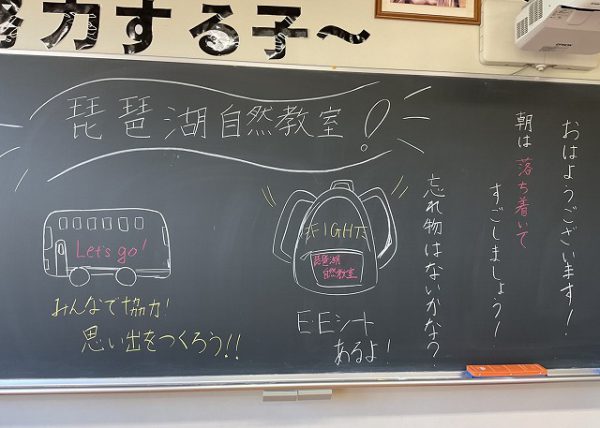 努力する子〜
琵琶湖自然教室!
おはようございます!
朝は落ち着いて
すごしましょう!
忘れ物はないかな?
Let's go!
みんなで協力!
思い出をつくろう!!
FIGHT
琵琶湖
自然教室
E・Eシート
あるよ!
EPSON